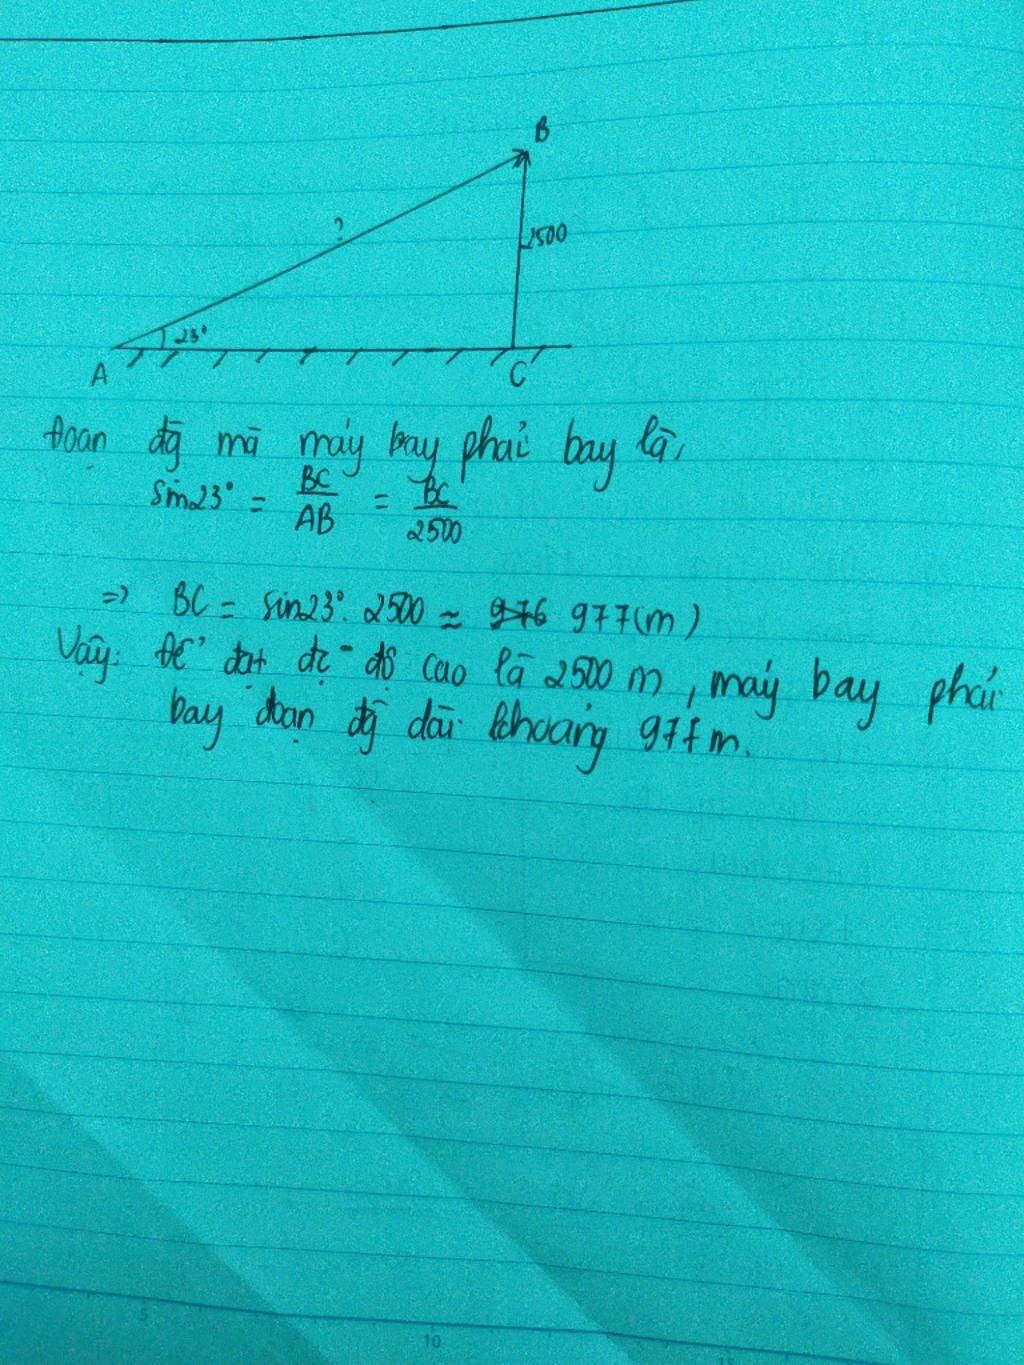 B
?
2500
23°
A
C
Đoạn đg̀ mà máy bay phải bay là,
sin23° = BC/AB = BC/2500
=> BC = sin23°. 2500 ≈ 976 977(m)
Vậy: Để đạt đc độ cao là 2500 m, máy bay phải
bay đoạn đg̀ dài khoảng 977m.
5
10
15